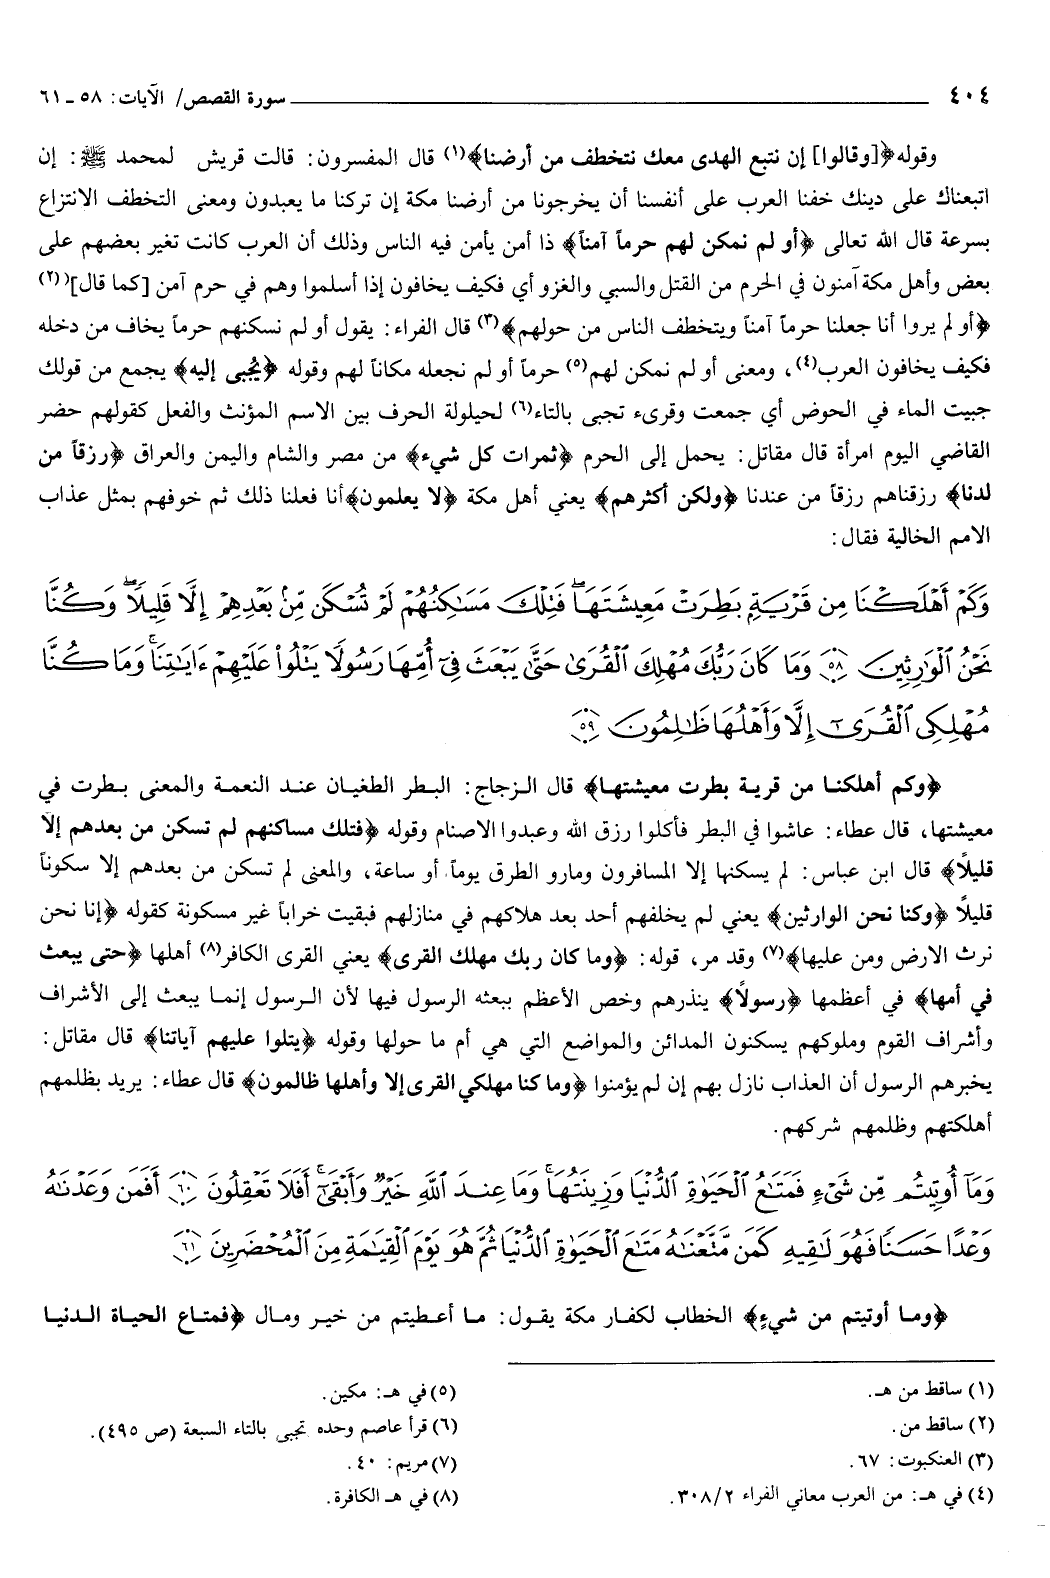 ٤٠٤ سورة القصص/ الآيات: ٥٨ ـ ٦١
وقوله ﴿[وقالوا] إن نتبع الهدى معك نتخطف من أرضنا﴾(١) قال المفسرون: قالت قريش لمحمد ﷺ: إن
اتبعناك على دينك خفنا العرب على أنفسنا أن يخرجونا من أرضنا مكة إن تركنا ما يعبدون ومعنى التخطف الانتزاع
بسرعة قال الله تعالى ﴿أو لم نمكن لهم حرماً آمناً﴾ ذا أمن يأمن فيه الناس وذلك أن العرب كانت تغير بعضهم على
بعض وأهل مكة آمنون في الحرم من القتل والسبي والغزو أي فكيف يخافون إذا أسلموا وهم في حرم آمن [كما قال](٢)
﴿أو لم يروا أنا جعلنا حرماً آمناً ويتخطف الناس من حولهم﴾(٣) قال الفراء: يقول أو لم نسكنهم حرماً يخاف من دخله
فكيف يخافون العرب(٤)، ومعنى أو لم نمكن لهم(٥) حرماً أو لم نجعله مكاناً لهم وقوله ﴿يُجبى إليه﴾ يجمع من قولك
جبيت الماء في الحوض أي جمعت وقرىء تجبى بالتاء(٦) لحيلولة الحرف بين الاسم المؤنث والفعل كقولهم حضر
القاضي اليوم امرأة قال مقاتل: يحمل إلى الحرم ﴿ثمرات كل شيء﴾ من مصر والشام واليمن والعراق ﴿رزقاً من
لدنا﴾ رزقناهم رزقاً من عندنا ﴿ولكن أكثرهم﴾ يعني أهل مكة ﴿لا يعلمون﴾ أنا فعلنا ذلك ثم خوفهم بمثل عذاب
الامم الخالية فقال:
وَكَمْ أَهْلَكْنَا مِن قَرْيَةٍ بَطِرَتْ مَعِيشَتَهَا ۖ فَتِلْكَ مَسَٰكِنُهُمْ لَمْ تُسْكَن مِّنۢ بَعْدِهِمْ إِلَّا قَلِيلًا ۖ وَكُنَّا
نَحْنُ ٱلْوَٰرِثِينَ ٥٨ وَمَا كَانَ رَبُّكَ مُهْلِكَ ٱلْقُرَىٰ حَتَّىٰ يَبْعَثَ فِىٓ أُمِّهَا رَسُولًا يَتْلُوا۟ عَلَيْهِمْ ءَايَٰتِنَا ۚ وَمَا كُنَّا
مُهْلِكِى ٱلْقُرَىٰٓ إِلَّا وَأَهْلُهَا ظَٰلِمُونَ ٥٩
﴿وكم أهلكنا من قرية بطرت معيشتها﴾ قال الزجاج: البطر الطغيان عند النعمة والمعنى بطرت في
معيشتها، قال عطاء: عاشوا في البطر فأكلوا رزق الله وعبدوا الاصنام وقوله ﴿فتلك مساكنهم لم تسكن من بعدهم إلا
قليلاً﴾ قال ابن عباس: لم يسكنها إلا المسافرون ومارو الطرق يوماً أو ساعة، والمعنى لم تسكن من بعدهم إلا سكوناً
قليلاً ﴿وكنا نحن الوارثين﴾ يعني لم يخلفهم أحد بعد هلاكهم في منازلهم فبقيت خراباً غير مسكونة كقوله ﴿إنا نحن
نرث الارض ومن عليها﴾(٧) وقد مر، قوله: ﴿وما كان ربك مهلك القرى﴾ يعني القرى الكافر(٨) أهلها ﴿حتى يبعث
في أمها﴾ في أعظمها ﴿رسولاً﴾ ينذرهم وخص الأعظم ببعثه الرسول فيها لأن الرسول إنما يبعث إلى الأشراف
وأشراف القوم وملوكهم يسكنون المدائن والمواضع التي هي أم ما حولها وقوله ﴿يتلوا عليهم آياتنا﴾ قال مقاتل:
يخبرهم الرسول أن العذاب نازل بهم إن لم يؤمنوا ﴿وما كنا مهلكي القرى إلا وأهلها ظالمون﴾ قال عطاء: يريد بظلمهم
أهلكتهم وظلمهم شركهم.
وَمَآ أُوتِيتُم مِّن شَىْءٍ فَمَتَٰعُ ٱلْحَيَوٰةِ ٱلدُّنْيَا وَزِينَتُهَا ۚ وَمَا عِندَ ٱللَّهِ خَيْرٌ وَأَبْقَىٰٓ ۚ أَفَلَا تَعْقِلُونَ ٦٠ أَفَمَن وَعَدْنَٰهُ
وَعْدًا حَسَنًا فَهُوَ لَٰقِيهِ كَمَن مَّتَّعْنَٰهُ مَتَٰعَ ٱلْحَيَوٰةِ ٱلدُّنْيَا ثُمَّ هُوَ يَوْمَ ٱلْقِيَٰمَةِ مِنَ ٱلْمُحْضَرِينَ ٦١
﴿وما أوتيتم من شيءٍ﴾ الخطاب لكفار مكة يقول: ما أعطيتم من خير ومال ﴿فمتاع الحياة الدنيا
(١) ساقط من هـ.
(٢) ساقط من.
(٣) العنكبوت: ٦٧.
(٤) في هـ: من العرب معاني الفراء ٣٠٨/٢.
(٥) في هـ: مكين.
(٦) قرأ عاصم وحده تجبى بالتاء السبعة (ص ٤٩٥).
(٧) مريم: ٤٠.
(٨) في هـ الكافرة.